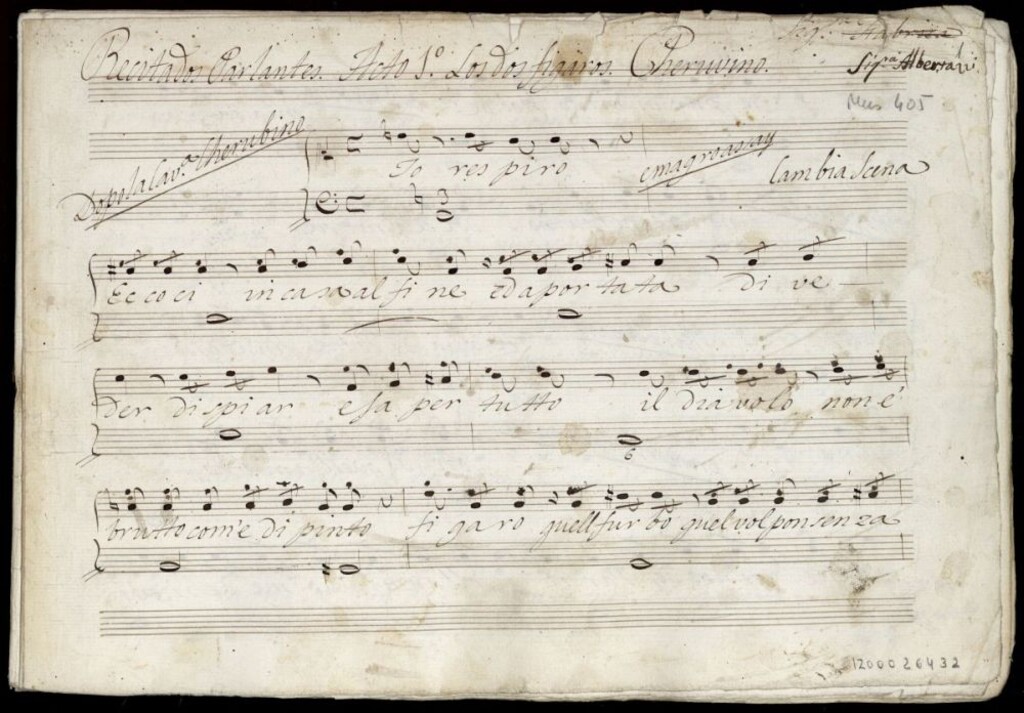 Recitados Parlantes. Acto 1º. Los dos figaros. Cheruvino.
Sigra Albertazzi.
Mus 405
Dopo la Cava. Cherubino
Io respiro
Cambia Scena
Eccoci in casa alfine ed a portata di ve
der di spiar e sa per tutto il diavolo non é
brutto com'e di pinto figaro quell furbo quel volpon senza
1200026432